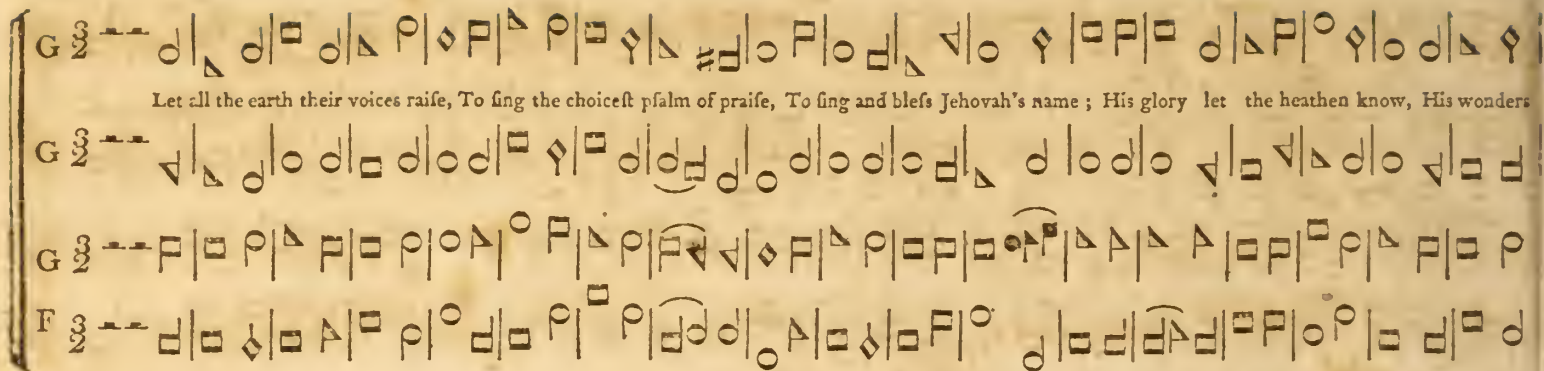 G 3 2
Let all the earth their voices raiſe, To ſing the choiceſt pſalm of praiſe, To ſing and bleſs Jehovah's name ; His glory let the heathen know, His wonders
G 3 2
G 3 2
F 3 2